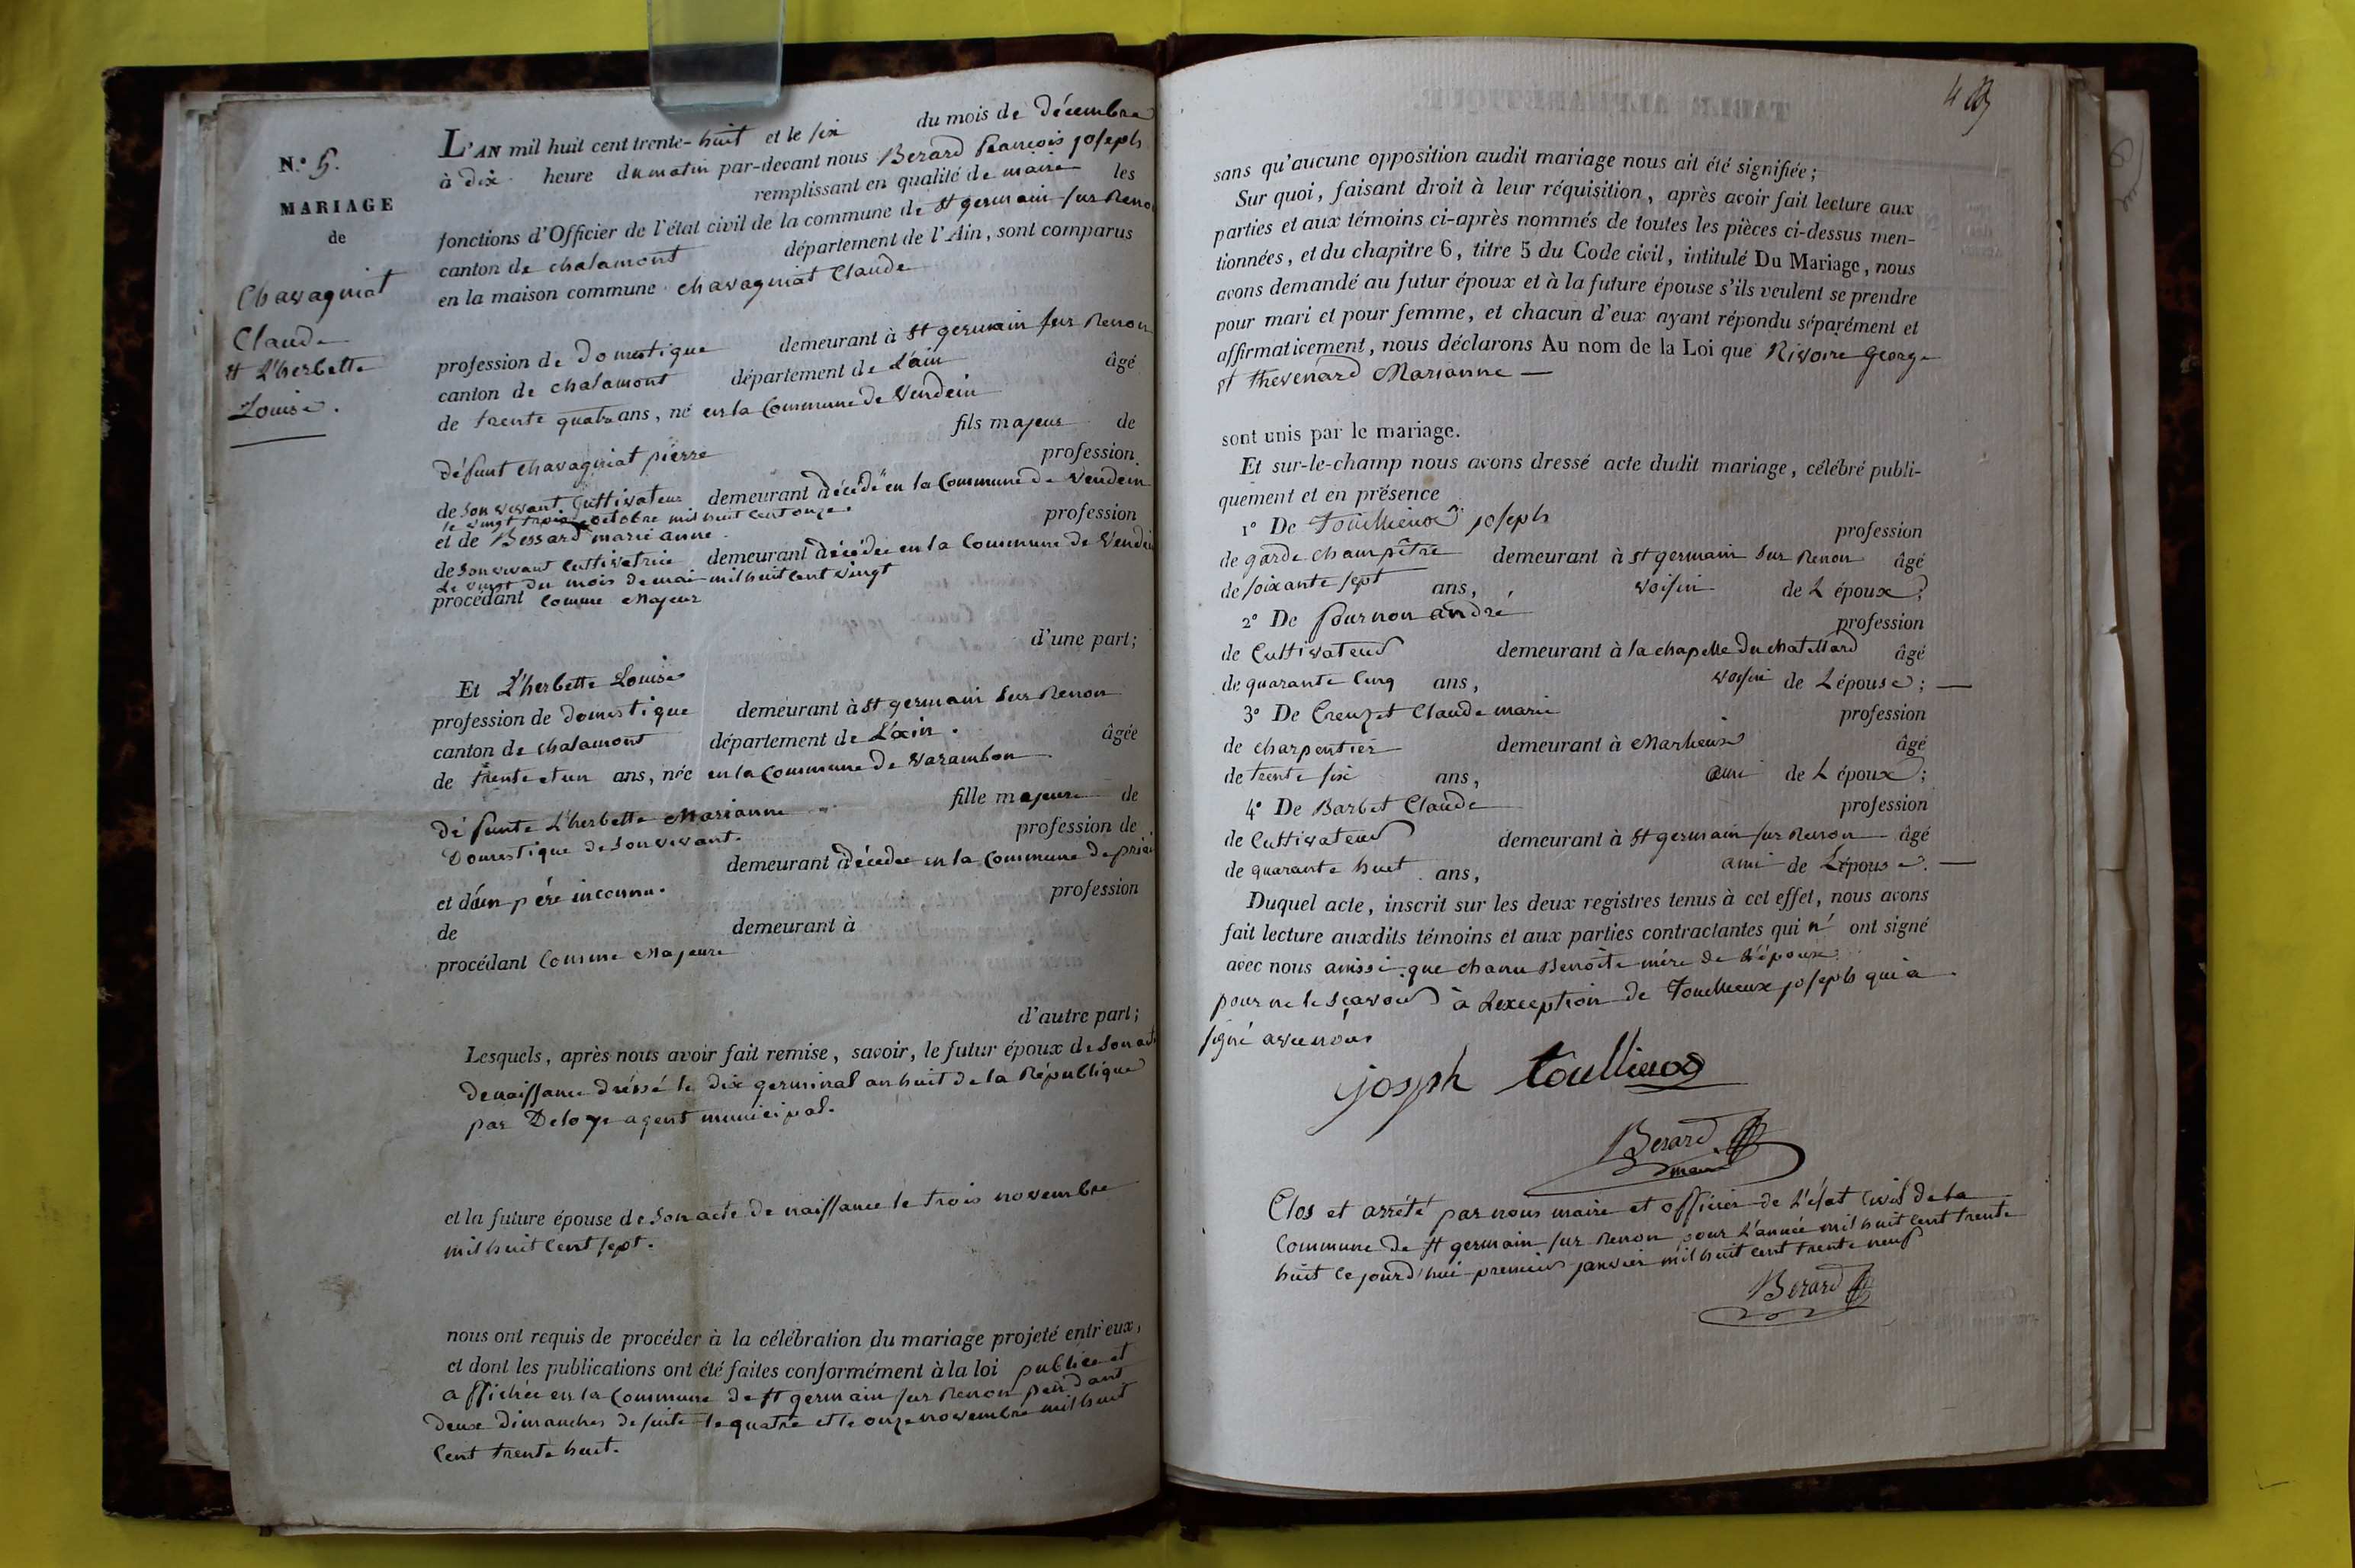 N.° 5.
MARIAGE
de
Chavagniat
Claude
et L'herbette
Louise.
L'AN mil huit cent trente-huit et le six du mois de décembre
à dix heure du matin par-devant nous Berard françois joseph
remplissant en qualité de maire les
fonctions d'Officier de l'état civil de la commune de St germain sur Renon
canton de chalamont département de l'Ain, sont comparus
en la maison commune chavagniat Claude
profession de domestique demeurant à St germain sur Renon
canton de chalamont département de L'ain âgé
de trente quatre ans, né en la Commune de Vendein
fils majeur de
défunt chavagniat pierre profession
de son vivant Cultivateur demeurant décédé en la Commune de Vendein
le vingt trois octobre mil huit cent onze.
et de Bessard marie anne profession
de son vivant Cultivatrice demeurant décédée en la Commune de Vendein
Le vingt du mois de mai mil huit cent vingt
procédant comme Majeur
d'une part;
Et L'herbette Louise
profession de domestique demeurant à St germain sur Renon
canton de chalamont département de L'ain. âgée
de trente et un ans, née en la Commune de Varambon
fille majeure de
défunte L'herbette Marianne
Domestique de son vivant. profession de
demeurant décédée en la Commune de
et d'un père inconnu. profession
de demeurant à
procédant Comme Majeure
d'autre part;
Lesquels, après nous avoir fait remise, savoir, le futur époux de son acte
de naissance dréssé le dix germinal an huit de la République
par Deloye agent municipal.
et la future épouse de son acte de naissance le trois novembre
mil huit Cent sept.
nous ont requis de procéder à la célébration du mariage projeté entr'eux,
et dont les publications ont été faites conformément à la loi publiée et
affichée en la Commune de St germain sur Renon pendant
deux dimanches de suite le quatre et le onze novembre mil huit
Cent trente huit.
sans qu'aucune opposition audit mariage nous ait été signifiée;
Sur quoi, faisant droit à leur réquisition, après avoir fait lecture aux
parties et aux témoins ci-après nommés de toutes les pièces ci-dessus men-
tionnées, et du chapitre 6, titre 5 du Code civil, intitulé Du Mariage, nous
avons demandé au futur époux et à la future épouse s'ils veulent se prendre
pour mari et pour femme, et chacun d'eux ayant répondu séparément et
affirmativement, nous déclarons Au nom de la Loi que Rivoire George
et thevenard Marianne —
sont unis par le mariage.
Et sur-le-champ nous avons dressé acte dudit mariage, célébré publi-
quement et en présence
1° De Toullieux joseph profession
de garde champêtre demeurant à St germain sur Renon âgé
de soixante sept ans, voisin de L époux;
2° De fournon andré profession
de Cultivateur demeurant à la chapelle du chatellard âgé
de quarante Cinq ans, voisin de L épouse; —
3° De Creuzet Claude marie profession
de charpentier demeurant à Marlieux âgé
de trente six ans, ami de L époux;
4° De Barbet Claude profession
de Cultivateur demeurant à St germain sur Renon âgé
de quarante huit ans, ami de L'épouse. —
Duquel acte, inscrit sur les deux registres tenus à cet effet, nous avons
fait lecture auxdits témoins et aux parties contractantes qui n' ont signé
avec nous ainssi que chanu Benoite mére de l'épouse
pour ne le scavoir à L'exception de Toullieux joseph qui a
signé avec nous
joseph toullieux
Berard
maire
Clos et arrété par nous maire et officier de L'état Civil de la
Commune de St germain sur Renon pour L'année mil huit Cent trente
huit Ce jourd'hui premier janvier mil huit cent trente neuf
Berard